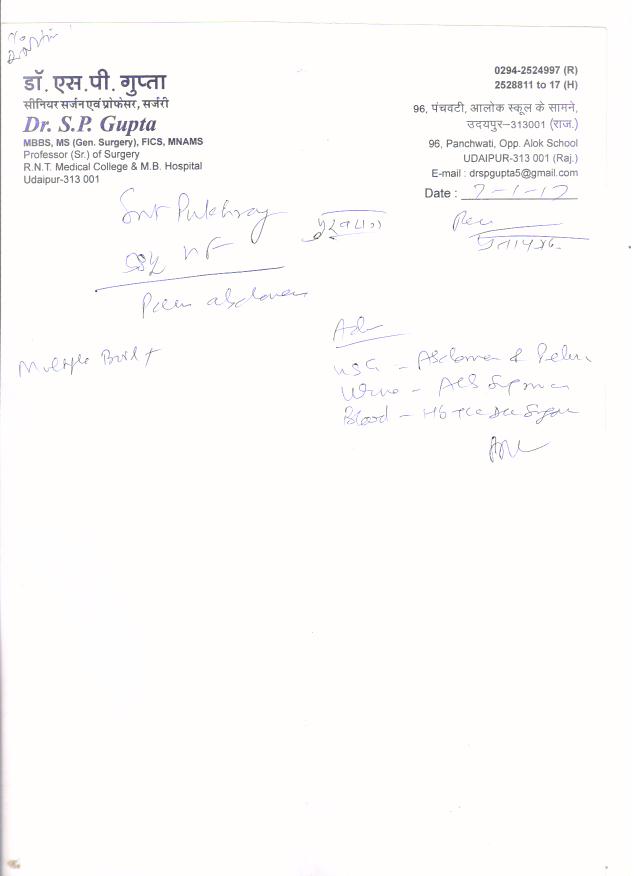 डॉ. एस.पी. गुप्ता
सीनियर सर्जन एवं प्रोफेसर, सर्जरी
Dr. S.P. Gupta
MBBS, MS (Gen. Surgery), FICS, MNAMS
Professor (Sr.) of Surgery
R.N.T. Medical College & M.B. Hospital
Udaipur-313 001
0294-2524997 (R)
2528811 to 17 (H)
96, पंचवटी, आलोक स्कूल के सामने,
उदयपुर–313001 (राज.)
96, Panchwati, Opp. Alok School
UDAIPUR-313 001 (Raj.)
E-mail : drspgupta5@gmail.com
Date : 7-1-17
Smt Pukhraj
Pain abdomen
Multiple Boil +
Adv
USG - Abdomen & Pelvis
Urine - Alb Sugar
Blood - Hb TLC DLC Sugar